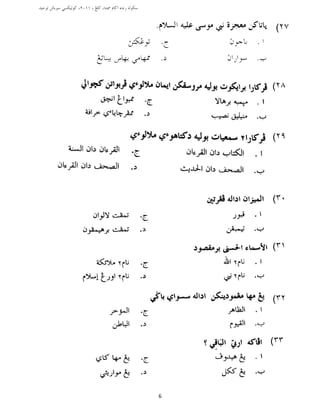 (٢٧ ياتاكن معجزة نبي موسى عليه السلام.
ا. باجوڽ ج. توڠكتڽ
ب. سواراڽ د. ممهامي بهاس بيناتڠ
(٢٨ ڤركارا برايكوت بوليه مروسقكن ايمان ملالوءي ڤربواتن كچوالي
ا. مڽمبه برهالا ج. ممبواڠ
ب. منيليق نصيب د. ممڤرچاياءي خرافة
(٢٩ ڤركارا٢ سمعيات بوليه دكتاهوءي ملالوءي
ا. الكتاب دان القرءان ج. القرءان دان السنة
ب. الصحف دان الحديث د. الصحف دان القرءان
(٣٠ الميزان اداله ڤڠرتين
ا. قبور ج. تمڤت لالوان
ب. تيمبڠن د. تمڤت برهيمڤون
(٣١ الأسماء الحسنى برمقصود
ا. نام٢ الله ج. نام٢ ملائكة
ب. نام٢ نبي د. نام٢ اورڠ إسلام
(٣٢ يڠ مها مڠموديـنكن اداله سسواي باڬي
ا. الظاهر ج. المؤخر
ب. القيوم د. الباطن
(٣٣ اڤاكه ارتي الباقي ؟
ا. يڠ هيدوڤ ج. يڠ مها كاي
ب. يڠ ككل د. يڠ مواريثي
6